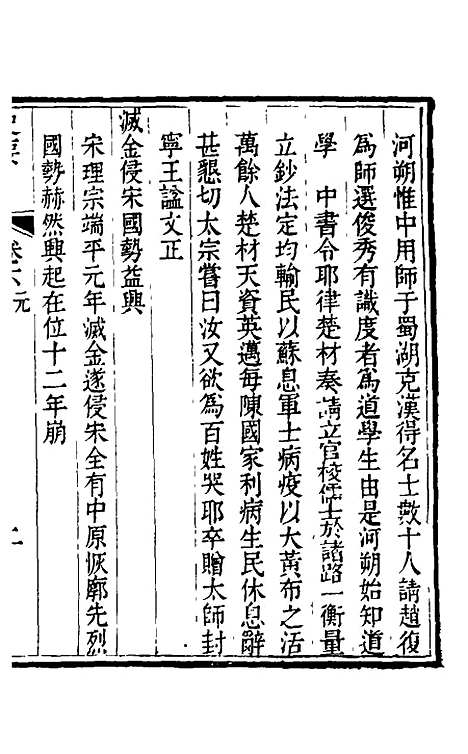 河朔惟中用師于蜀湖克漢得名士數十人請趙復
爲師選俊秀有識度者爲道學生由是河朔始知道
學　中書令耶律楚材奏請立官校儒士於諸路一衡量
立鈔法定均輸民以蘇息軍士病疫以大黃布之活
萬餘人楚材天資英邁每陳國家利病生民休息辭
甚懇切太宗嘗曰汝又欲爲百姓哭耶卒贈太師封
寧王諡文正
滅金侵宋國勢益興
宋理宗端平元年滅金遂侵宋全有中原恢廓先烈
國勢赫然興起在位十二年崩
卷六元